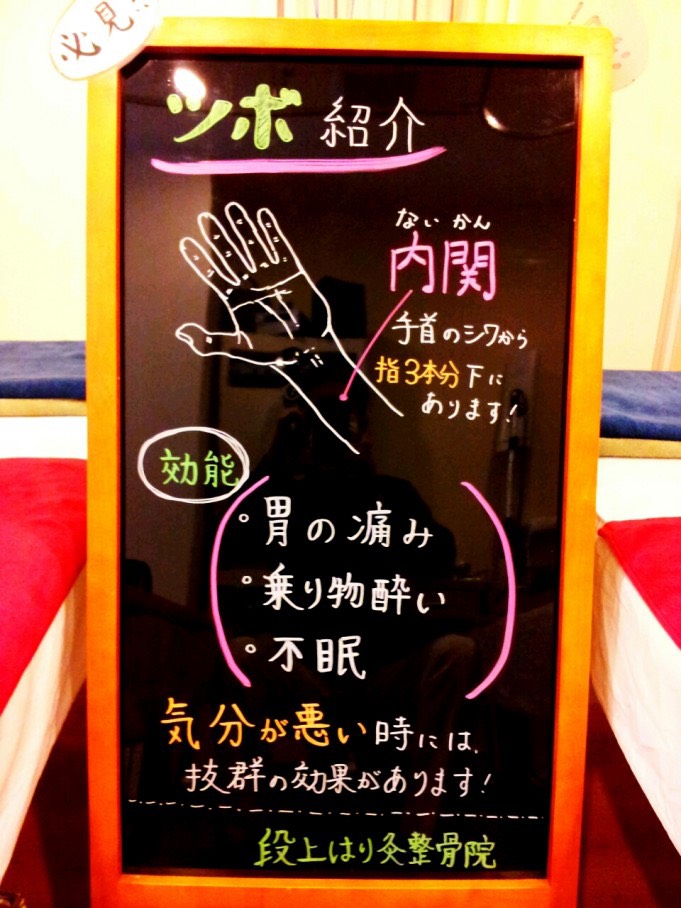 必見!!
ツボ 紹介
ないかん
内関
手首のシワから
指3本分下に
あります!
効能
。胃の痛み
。乗り物酔い
。不眠
気分が悪い時には、
抜群の効果があります!
段上はり灸整骨院